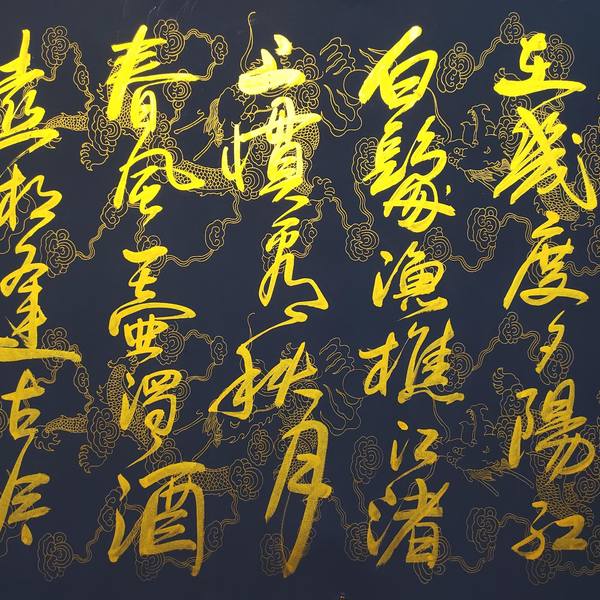 在幾度夕陽紅
白髮漁樵江渚
上慣看秋月
春風一壺濁酒
喜相逢古今